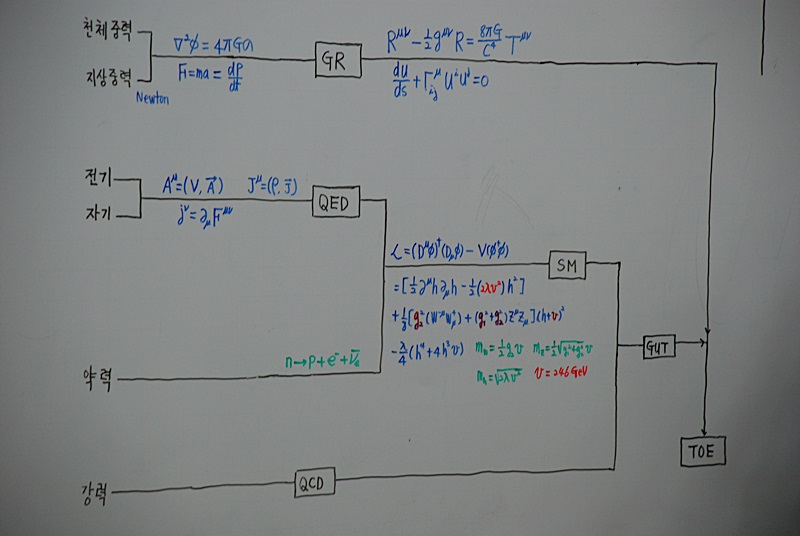 천체중력
∇²ϕ = 4πGρ
지상중력
F=ma = dP/dt
Newton
GR
R^μν − ½ g^μν R = 8πG/C⁴ T^μν
du/ds + Γ^μ_ij U^i U^j = 0
전기
자기
A^μ = (V, A⃗) J^μ = (ρ, J⃗)
j^ν = ∂_μ F^μν
QED
ℒ = (D^μϕ)^†(D_μϕ) − V(ϕ^†ϕ)
= [½ ∂^μh ∂_μh − ½(2λv²)h²]
+ ⅛[g₂²(W^-μ W^+_μ) + (g₁²+g₂²)Z^μ Z_μ](h+v)²
− λ/4 (h⁴ + 4h³v)
SM
m_w = ½ g₂ v m_z = ½√(g₁²+g₂²) v
m_h = √(2λv²) v = 246 GeV
약력
n → p + e⁻ + ν̄_e
강력
QCD
GUT
TOE